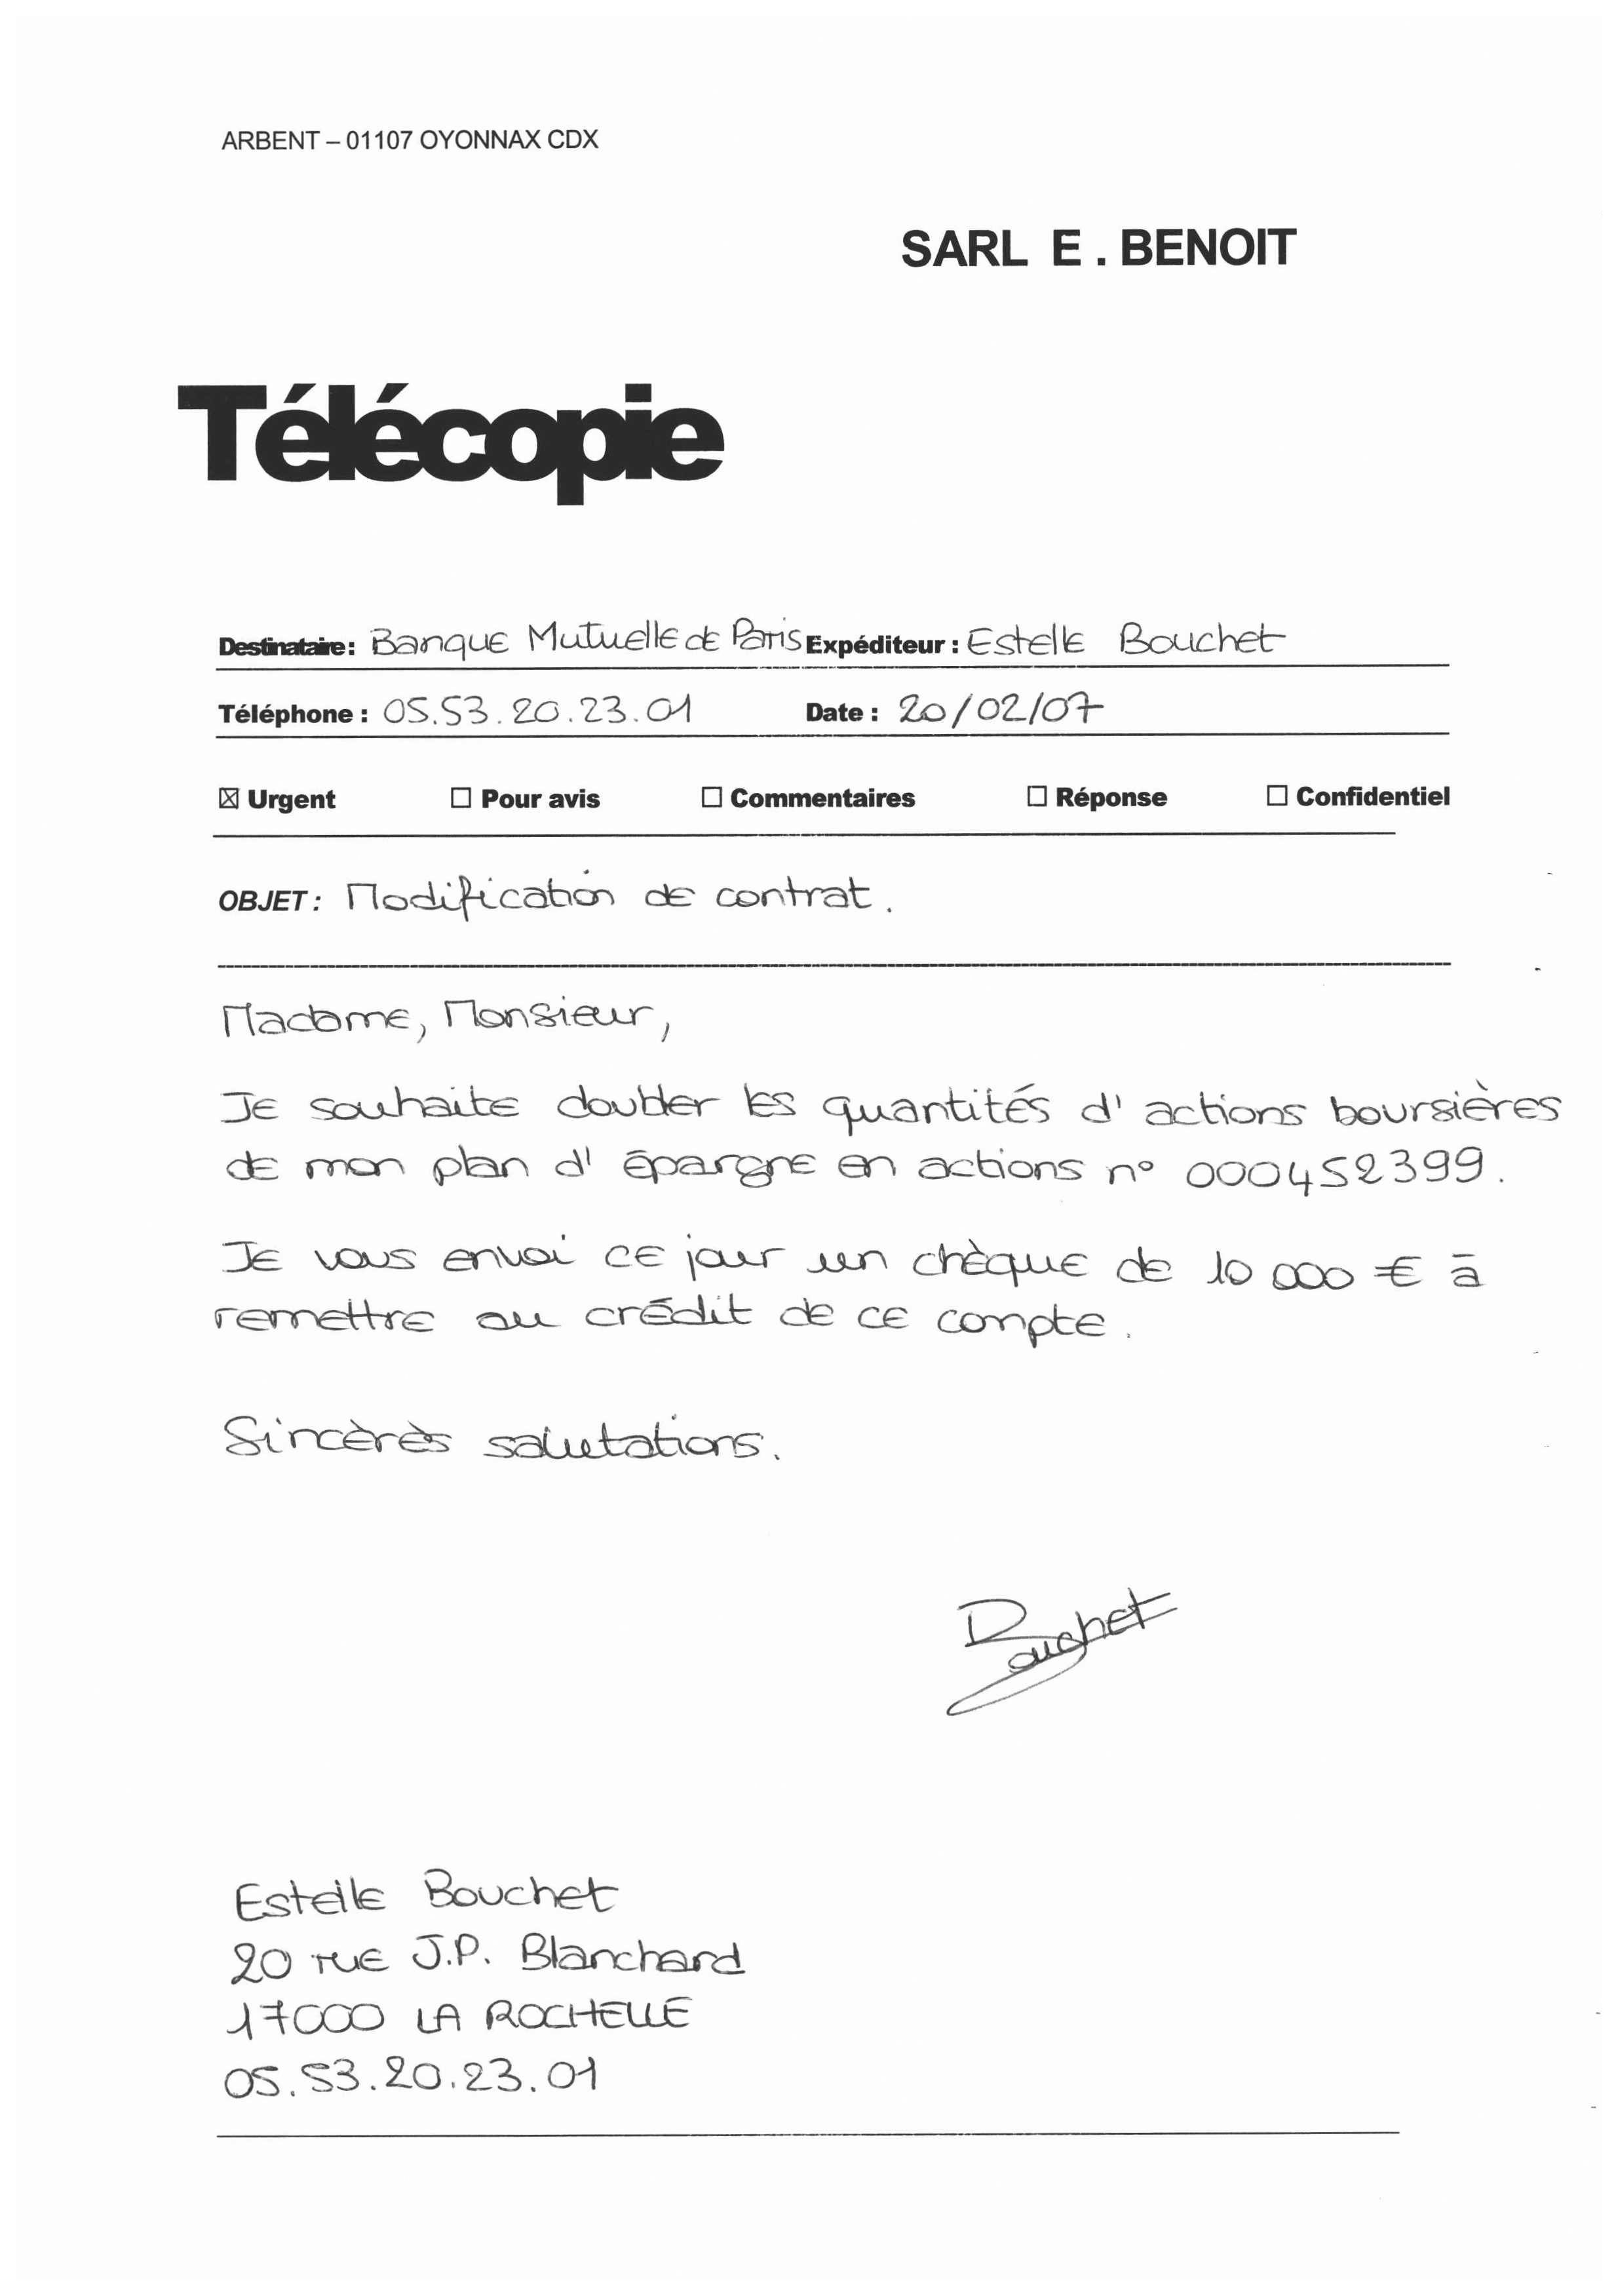 ARBENT – 01107 OYONNAX CDX
SARL E . BENOIT
Télécopie
Destinataire : Banque Mutuelle de Paris Expéditeur : Estelle Bouchet
Téléphone : 05.53.20.23.01 Date : 20/02/07
☒ Urgent ☐ Pour avis ☐ Commentaires ☐ Réponse ☐ Confidentiel
OBJET : Modification de contrat.
Madame, Monsieur,
Je souhaite doubler les quantités d'actions boursières
de mon plan d'épargne en actions n° 000452399.
Je vous envoi ce jour un chèque de 10 000 € à
remettre au crédit de ce compte.
Sincèrès salutations.
Bouchet
Estelle Bouchet
20 rue J.P. Blanchard
17000 LA ROCHELLE
05.53.20.23.01